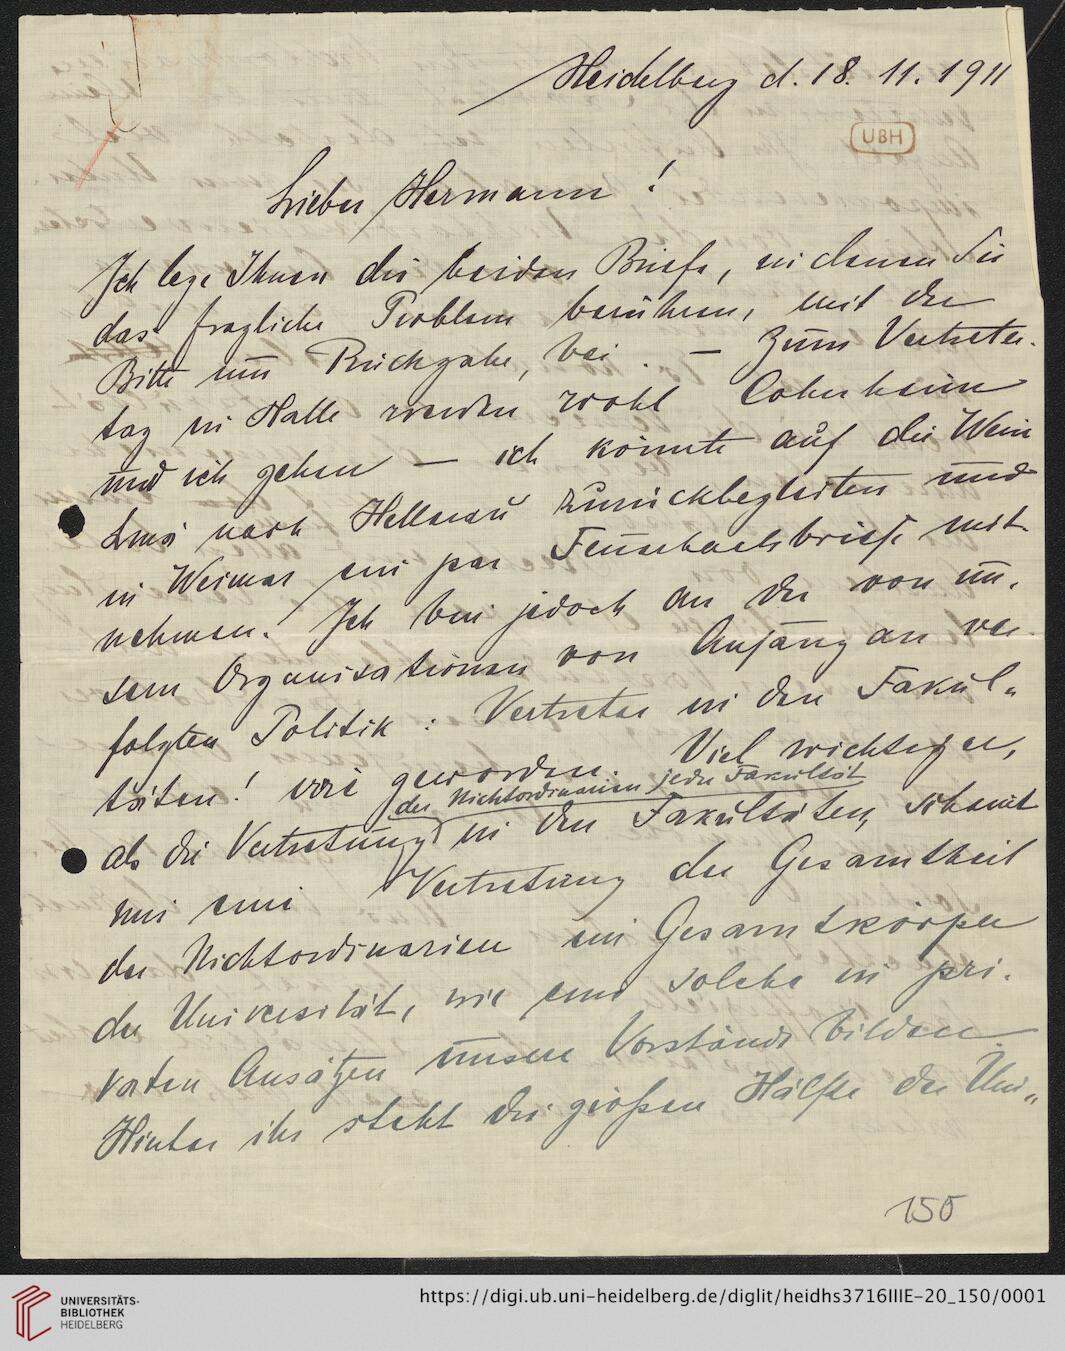 Heidelberg d. 18. 11. 1911
UBH
Lieber Hermann!
Ich lege Ihnen die beiden Briefe, in denen Sie
das fragliche Problem berühren, mit der
Bitte um Rückgabe, bei. – Zum Vertreter-
tag in Halle werden wohl Cohnheim
und ich gehen – ich könnte auf die Weise
nach Hellerau zurückbegleiten und
in Weimar ein par Feuerbachbriefe mit
nehmen. Ich bin jedoch an der von un-
sern Organisationen von Anfang an ver-
folgten Politik: Vertreter in den Fakul-
täten! irre geworden. Viel wichtiger,
der Nichtordinarien jeder Fakultät
als die Vertretung in den Fakultäten, scheint
mir eine Vertretung der Gesamtheit
der Nichtordinarien im Gesamtkörper
der Universität, wie eine solche in pri-
vaten Ansätzen unsere Vorstände bilden.
Hinter ihr steht die größere Hälfte der Uni-
150
UNIVERSITÄTS-
BIBLIOTHEK
HEIDELBERG
https://digi.ub.uni-heidelberg.de/diglit/heidhs3716IIIE-20_150/0001